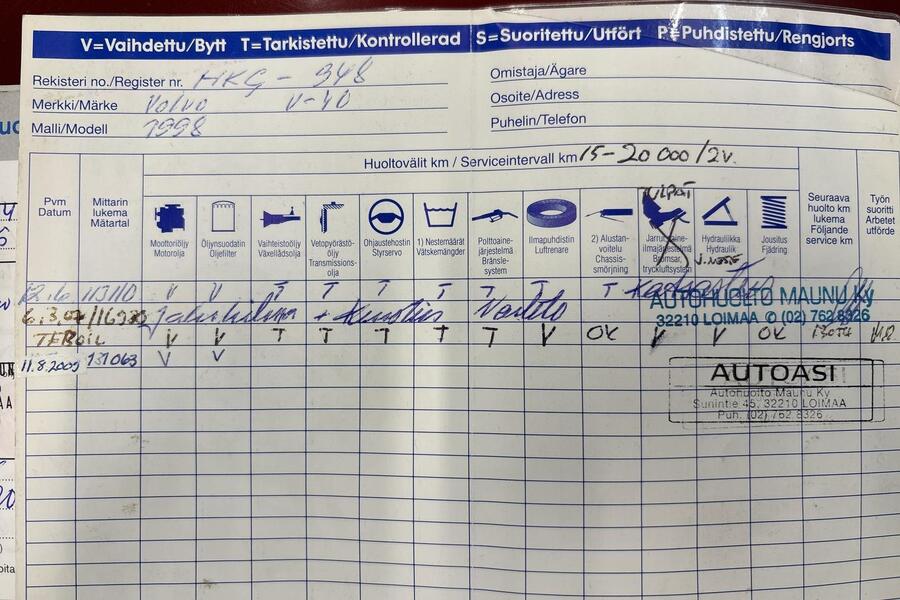 V=Vaihdettu/Bytt T=Tarkistettu/Kontrollerad S=Suoritettu/Utfört P=Puhdistettu/Rengjorts
Rekisteri no./Register nr. HKG-948
Merkki/Märke Volvo V-40
Malli/Modell 1998
Omistaja/Ägare
Osoite/Adress
Puhelin/Telefon
Huoltovälit km / Serviceintervall km 15-20 000/2v.
Pvm
Datum
Mittarin
lukema
Mätartal
Moottoriöljy
Motorolja
Öljynsuodatin
Oljefilter
Vaihteistoöljy
Växellådsolja
Vetopyörästö-
öljy
Transmissions-
olja
Ohjaustehostin
Styrservo
1) Nestemäärät
Vätskemängder
Polttoaine-
järjestelmä
Bränsle-
system
Ilmapuhdistin
Luftrenare
2) Alustan-
voitelu
Chassis-
smörjning
Jarruneste-
ilmajärjestelmä
Bromsar,
tryckluftsystem
Hydrauliikka
Hydraulik
J.NESTE
Jousitus
Fjädring
Seuraava
huolto km
lukema
Följande
service km
Työn
suoritti
Arbetet
utförde
113110 V V T T T T T T
6.3.07 Jakohihna + Kiristin Vaihto
TEBOIL V V T T T T T V OK V V OK
11.8.2009 131063 V V
AUTOHUOLTO MAUNU Ky
32210 LOIMAA (02) 762 8326
AUTOASI
Autohuolto Maunu Ky
Sunintie 45, 32210 LOIMAA
Puh. (02) 762 8326